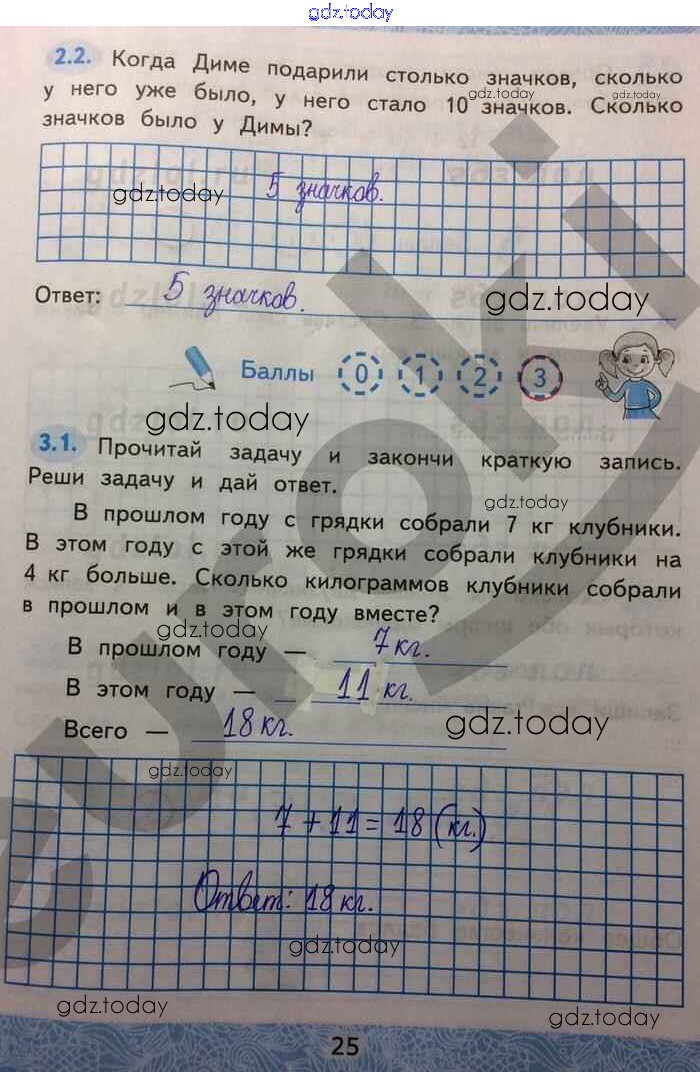 gdz.today
2.2. Когда Диме подарили столько значков, сколько
gdz.today gdz.today
у него уже было, у него стало 10 значков. Сколько
значков было у Димы?
gdz.today
5 значков.
Ответ: 5 значков.
gdz.today
Баллы 0 1 2 3
gdz.today
3.1. Прочитай задачу и закончи краткую запись.
Реши задачу и дай ответ.
gdz.today
В прошлом году с грядки собрали 7 кг клубники.
В этом году с этой же грядки собрали клубники на
4 кг больше. Сколько килограммов клубники собрали
в прошлом и в этом году вместе?
gdz.today
В прошлом году — 7 кг.
В этом году — 11 кг.
Всего — 18 кг.
gdz.today
gdz.today
7 + 11 = 18 (кг.)
Ответ: 18 кг.
gdz.today
gdz.today
gdz.today
25